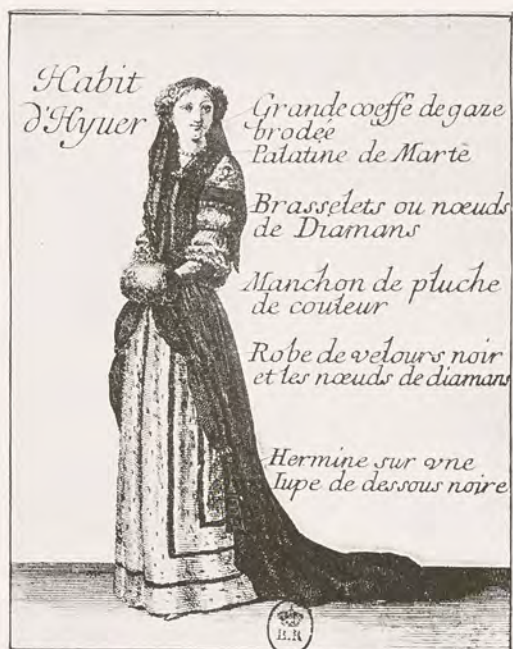 Habit
d'Hyuer
Grande coeffe de gaze
brodée
Palatine de Marte
Brasselets ou nœuds
de Diamans
Manchon de pluche
de couleur
Robe de velours noir
et les nœuds de diamans
Hermine sur vne
Iupe de dessous noire
B.R